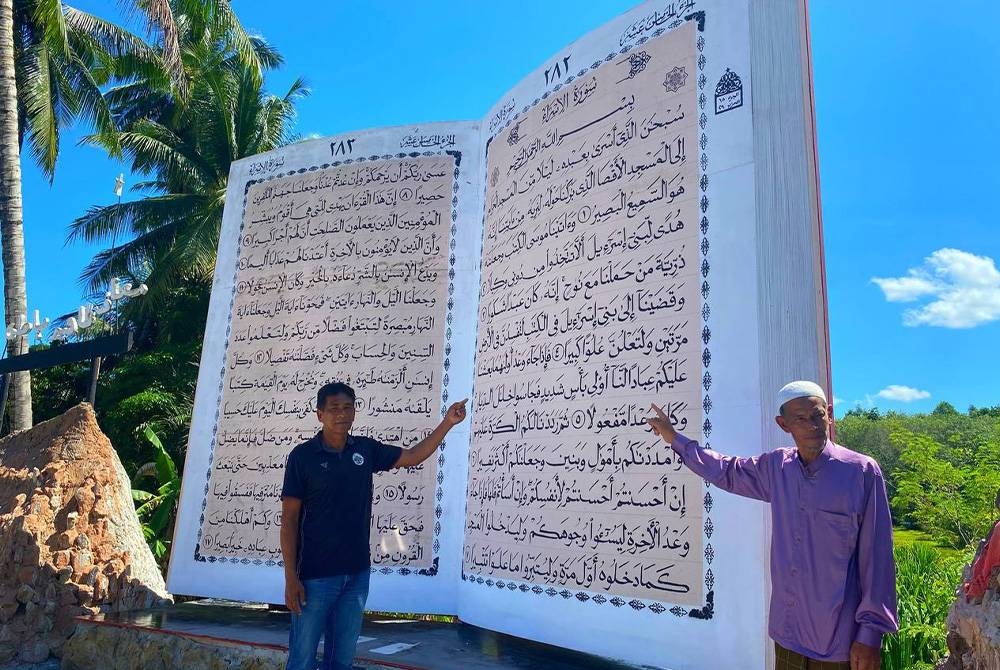 الجزء الخامس عشر
٢٨٢
سورة الإسراء
سُورَةُ الإِسْرَاءِ
بِسْمِ اللَّهِ الرَّحْمَٰنِ الرَّحِيمِ
سُبْحَٰنَ الَّذِي أَسْرَىٰ بِعَبْدِهِ لَيْلًا مِّنَ الْمَسْجِدِ
إِلَى الْمَسْجِدِ الْأَقْصَا الَّذِي بَٰرَكْنَا حَوْلَهُ لِنُرِيَهُ مِنْ ءَايَٰتِنَا إِنَّهُ
هُوَ السَّمِيعُ الْبَصِيرُ ١ وَءَاتَيْنَا مُوسَى الْكِتَٰبَ وَجَعَلْنَٰهُ
هُدًى لِّبَنِي إِسْرَٰءِيلَ أَلَّا تَتَّخِذُوا مِن دُونِي وَكِيلًا
ذُرِّيَّةَ مَنْ حَمَلْنَا مَعَ نُوحٍ إِنَّهُ كَانَ عَبْدًا شَكُورًا
وَقَضَيْنَا إِلَىٰ بَنِي إِسْرَٰءِيلَ فِي الْكِتَٰبِ لَتُفْسِدُنَّ فِي الْأَرْضِ
مَرَّتَيْنِ وَلَتَعْلُنَّ عُلُوًّا كَبِيرًا ٤ فَإِذَا جَاءَ وَعْدُ أُولَىٰهُمَا بَعَثْنَا
عَلَيْكُمْ عِبَادًا لَّنَا أُولِي بَأْسٍ شَدِيدٍ فَجَاسُوا خِلَٰلَ الدِّيَارِ
وَكَانَ وَعْدًا مَّفْعُولًا ٥ ثُمَّ رَدَدْنَا لَكُمُ الْكَرَّةَ عَلَيْهِمْ
وَأَمْدَدْنَٰكُم بِأَمْوَٰلٍ وَبَنِينَ وَجَعَلْنَٰكُمْ أَكْثَرَ نَفِيرًا
إِنْ أَحْسَنتُمْ أَحْسَنتُمْ لِأَنفُسِكُمْ وَإِنْ أَسَأْتُمْ فَلَهَا فَإِذَا جَاءَ
وَعْدُ الْأَخِرَةِ لِيَسُۥٓـُٔوا وُجُوهَكُمْ وَلِيَدْخُلُوا الْمَسْجِدَ
كَمَا دَخَلُوهُ أَوَّلَ مَرَّةٍ وَلِيُتَبِّرُوا مَا عَلَوْا تَتْبِيرًا
الجزء الخامس عشر
٢٨٣
سورة الإسراء
عَسَىٰ رَبُّكُمْ أَن يَرْحَمَكُمْ وَإِنْ عُدتُّمْ عُدْنَا وَجَعَلْنَا جَهَنَّمَ لِلْكَٰفِرِينَ
حَصِيرًا ٨ إِنَّ هَٰذَا الْقُرْءَانَ يَهْدِي لِلَّتِي هِيَ أَقْوَمُ وَيُبَشِّرُ
الْمُؤْمِنِينَ الَّذِينَ يَعْمَلُونَ الصَّٰلِحَٰتِ أَنَّ لَهُمْ أَجْرًا كَبِيرًا ٩
وَأَنَّ الَّذِينَ لَا يُؤْمِنُونَ بِالْأَخِرَةِ أَعْتَدْنَا لَهُمْ عَذَابًا أَلِيمًا
وَيَدْعُ الْإِنسَٰنُ بِالشَّرِّ دُعَاءَهُ بِالْخَيْرِ وَكَانَ الْإِنسَٰنُ عَجُولًا
وَجَعَلْنَا الَّيْلَ وَالنَّهَارَ ءَايَتَيْنِ فَمَحَوْنَا ءَايَةَ الَّيْلِ وَجَعَلْنَا ءَايَةَ
النَّهَارِ مُبْصِرَةً لِّتَبْتَغُوا فَضْلًا مِّن رَّبِّكُمْ وَلِتَعْلَمُوا عَدَدَ
السِّنِينَ وَالْحِسَابَ وَكُلَّ شَيْءٍ فَصَّلْنَٰهُ تَفْصِيلًا ١٢ وَكُلَّ
إِنسَٰنٍ أَلْزَمْنَٰهُ طَٰئِرَهُ وَنُخْرِجُ لَهُ يَوْمَ الْقِيَٰمَةِ كِتَٰبًا
يَلْقَىٰهُ مَنشُورًا كَفَىٰ بِنَفْسِكَ الْيَوْمَ عَلَيْكَ حَسِيبًا
مَّنِ اهْتَدَىٰ وَمَن ضَلَّ فَإِنَّمَا يَضِلُّ
مُعَذِّبِينَ حَتَّىٰ نَبْعَثَ
رَسُولًا ١٥ فَفَسَقُوا فِيهَا
فَحَقَّ عَلَيْهَا وَكَمْ أَهْلَكْنَا مِنَ
الْقُرُونِ مِن عِبَادِهِ خَبِيرًا ١٧